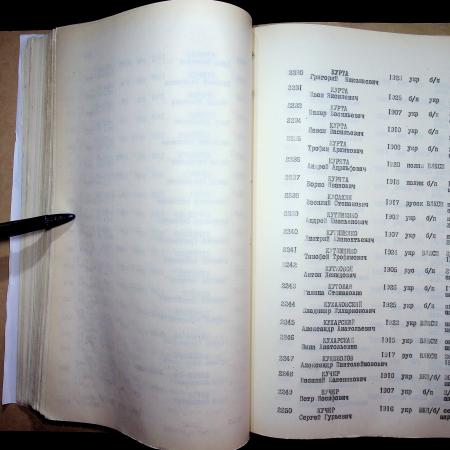 2230 КУРТА
Григорий Николаевич 1921 укр б/п
2231 КУРТА
Иван Яковлевич 1925 б/п укр
2232 КУРТА
Захар Васильевич 1907 укр б/п
2234 КУРТА
Павел Васильевич 1910 укр б/п
2235 КУРТА
Трофим Архипович 1908 укр б/п
2236 КУРЯТА
Андрей 1920 ВЛКСМ
2237 КУРЯТА
Борис Иванович 1918 б/п
2238
Василий Степанович 1917 русск ВЛКСМ
2239 КУТЛИЕНКО
Андрей Емельянович укр б/п
2240
Дмитрий Климентьевич 1907 укр б/п
2241
Тимофей Трофимович 1924 укр ВЛКСМ
2242 КУТЛОВОЙ
Антон Демидович 1905 рус б/п
2243 КУТОВАЯ
Галина Степановна 1923 укр б/п
2244 КУХАНОВСКИЙ
Владимир Илларионович 1925 укр б/п
2245 КУХАРСКИЙ
Александр Анатольевич 1922 укр ВЛКСМ
2246 КУХАРСКАЯ
Нина Анатольевна 1915 укр ВЛКСМ
2247
Александр Пантелеймонович 1917 рус ВЛКСМ
2248 КУЧЕР
Василий 1910 укр ВКП/б/
2249 КУЧЕР
Петр Иосифович 1907 укр б/п
2250 КУЧЕР
Сергей Гурьевич 1916 укр ВКП/б/